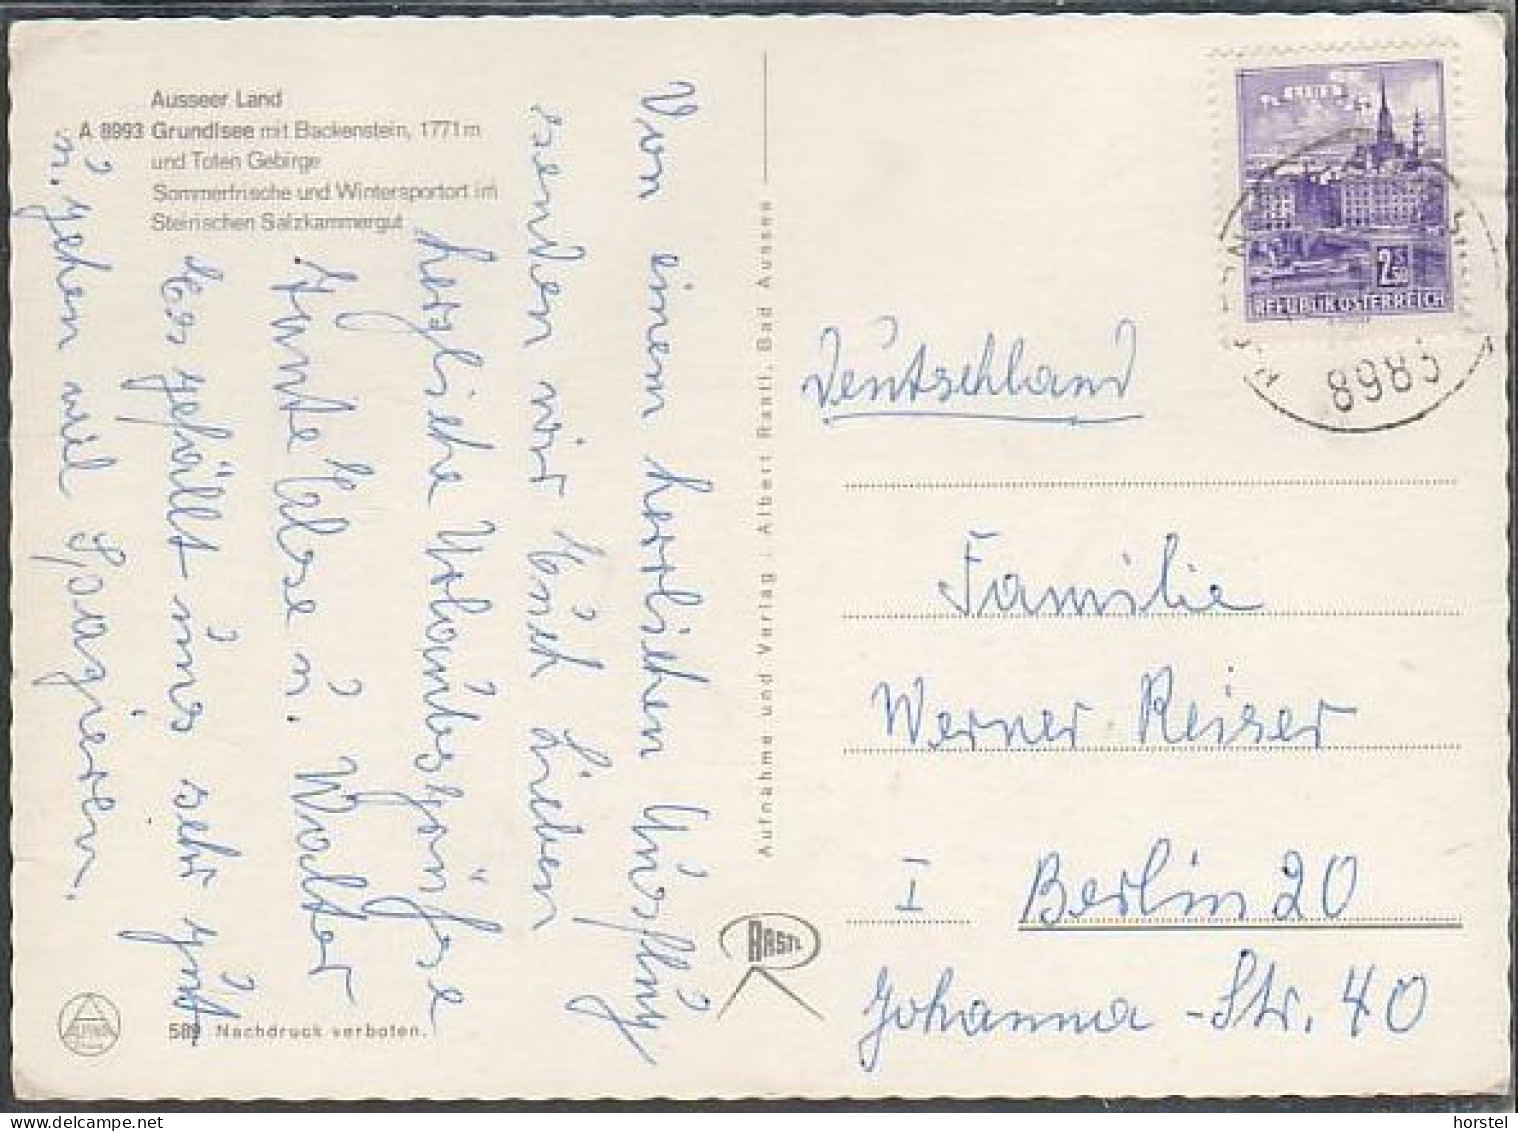 Ausseer Land
A 8993 Grundlsee mit Backenstein, 1771 m
und Toten Gebirge
Sommerfrische und Wintersportort im
Steirischen Salzkammergut
Von einem herrlichen Ausflug
senden wir Euch Lieben
herzliche Urlaubsgrüße
Tante Else u. Walter
Es gefällt uns sehr gut
u. gehen viel spazieren.
589 Nachdruck verboten.
Aufnahme und Verlag: Albert Rastl, Bad Aussee
RASTL
REPUBLIK ÖSTERREICH
8983
Deutschland
Familie
Werner Reiser
I Berlin 20
Johanna-Str. 40
horstel